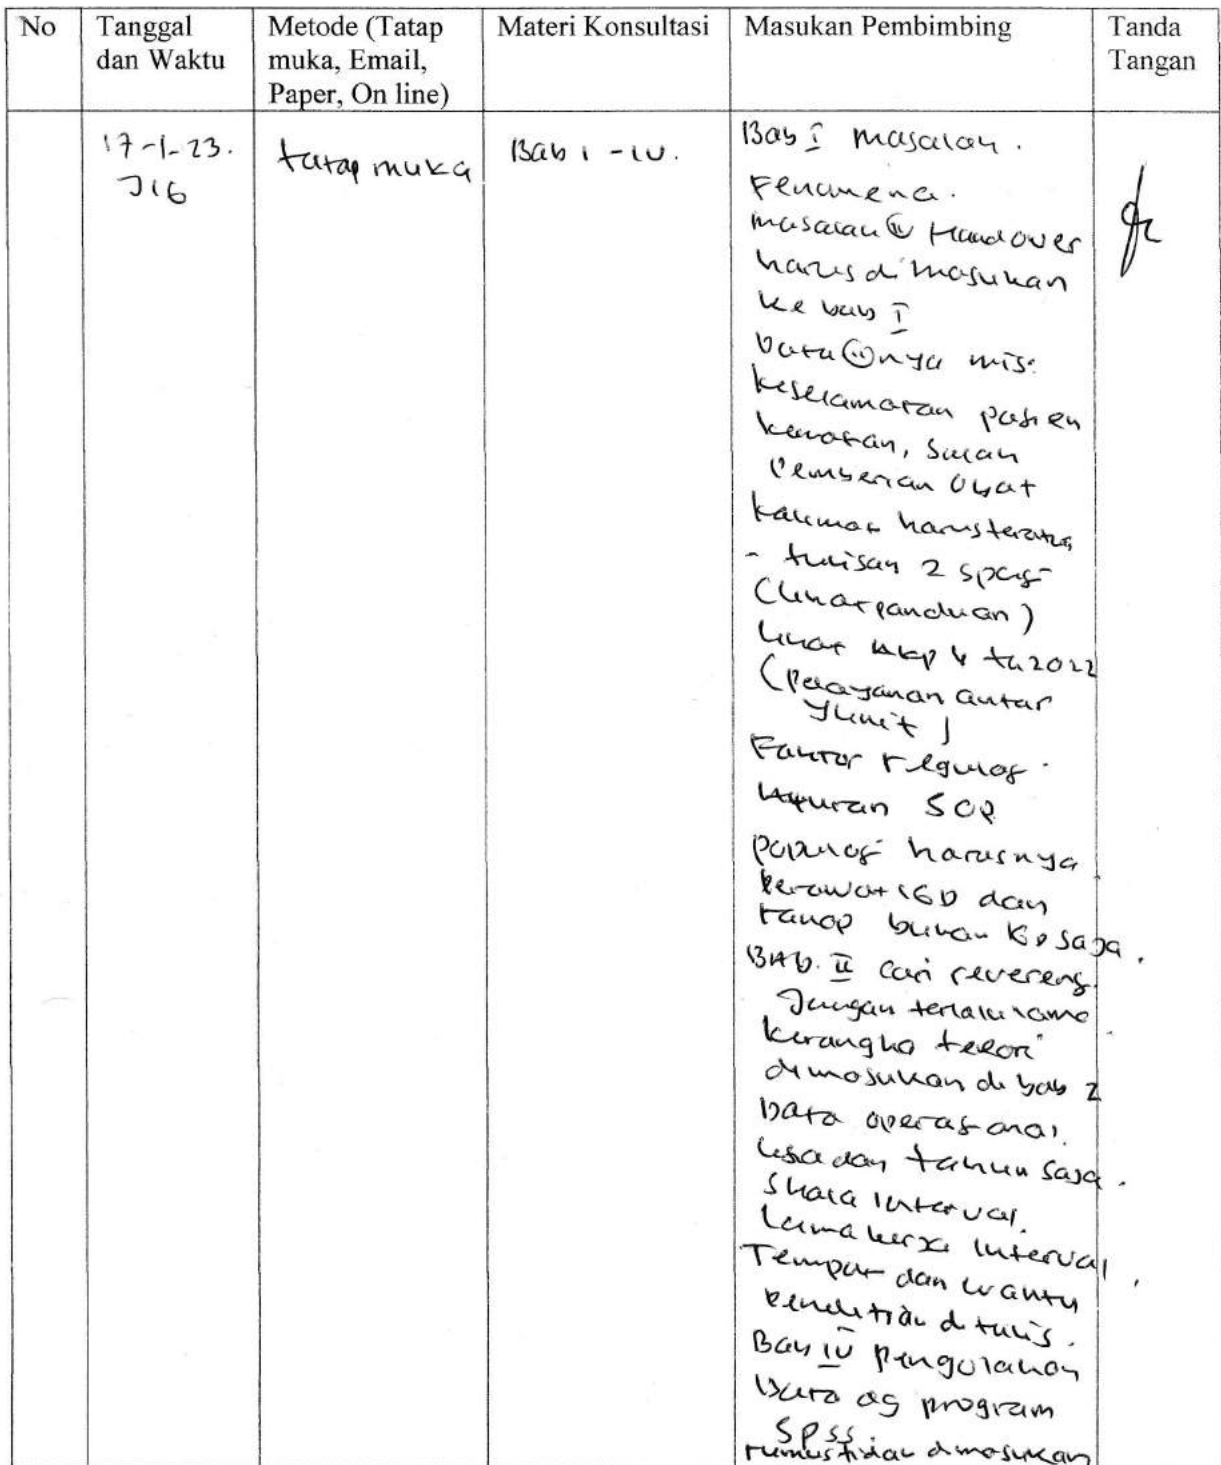 No
Tanggal
dan Waktu
Metode (Tatap
muka, Email,
Paper, On line)
Materi Konsultasi
Masukan Pembimbing
Tanda
Tangan
17-1-23.
J16
tatap muka
Bab 1 - IV.
Bab I masalah.
Fenomena.
masalah Handover
harus dimasukan
ke bab I
Data nya mis:
keselamatan pasien
kematian, salah
Pemberian Obat
kalimat harus teratur
- tulisan 2 spasi
(lihat panduan)
lihat th 2022
(Pelayanan antar
unit)
Faktor regulasi
SOP
populasi harusnya
Perawat IGD dan
ranap bukan IGD saja.
BAB. II cari referensi
Jangan terlalu lama
kerangka teori
dimasukan di bab 2
Data operasional.
Usia dan tahun saja.
Skala interval.
Lama kerja interval.
Tempat dan waktu
Penelitian ditulis.
Bab IV pengolahan
Data dg program
SPSS
rumus tidak dimasukan